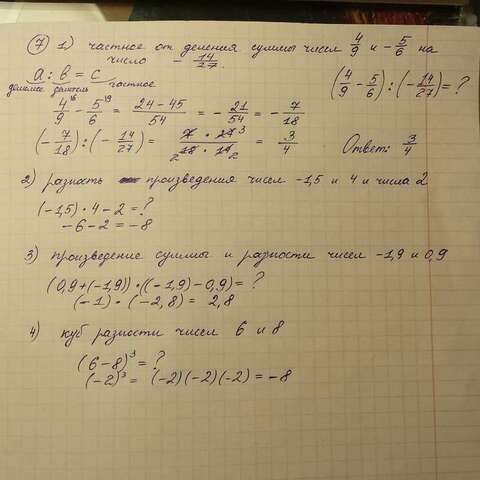 7) 1) частное от деления суммы чисел 4/9 и -5/6 на
число - 14/27.
a : b = c
делимое делитель частное
(4/9 - 5/6) : (-14/27) = ?
4/9 - 5/6 = (24-45)/54 = -21/54 = -7/18
(-7/18) : (-14/27) = (7 • 27 3)/(2 18 • 14 2) = 3/4 Ответ: 3/4
2) разность произведения чисел -1,5 и 4 и числа 2
(-1,5) • 4 - 2 = ?
-6 - 2 = -8
3) произведение суммы и разности чисел -1,9 и 0,9
(0,9 + (-1,9)) • ((-1,9) - 0,9) = ?
(-1) • (-2,8) = 2,8
4) куб разности чисел 6 и 8
(6-8)³ = ?
(-2)³ = (-2)(-2)(-2) = -8